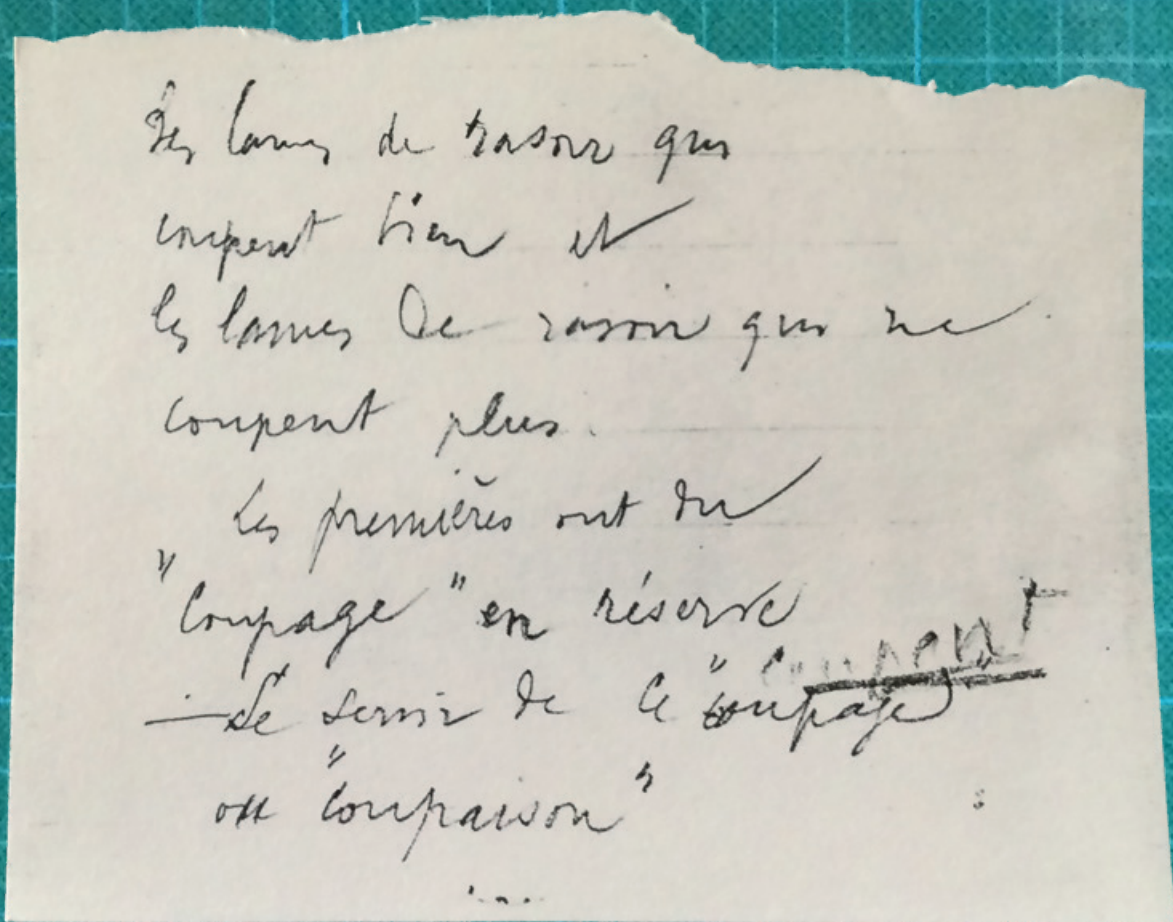 Les lames de rasoir qui
coupent bien et
les lames de rasoir qui ne
coupent plus.
Les premières ont du
"coupage" en réserve
coupent
—Se servir de ce "coupage"
ou "coupaison"